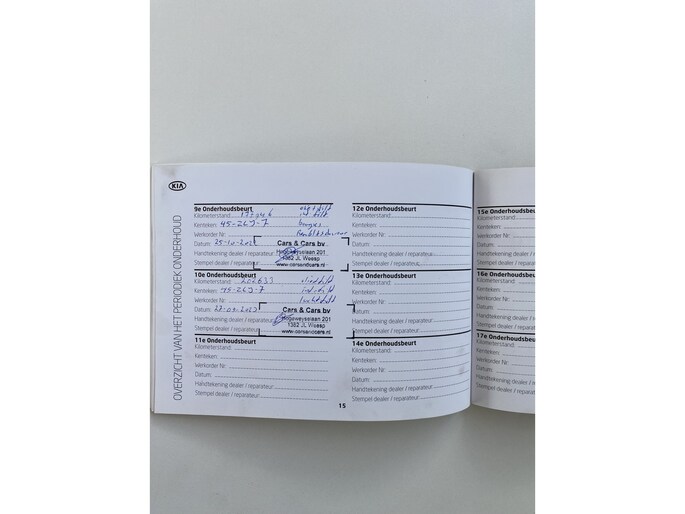 KIA
OVERZICHT VAN HET PERIODIEK ONDERHOUD
9e Onderhoudsbeurt
Kilometerstand:
Kenteken:
Werkorder Nr.
Datum: 25-10-202
Handtekening dealer / reparateur:
Stempel dealer / reparateur:
Cars & Cars bv
201
1382 JL Weesp
www.carsandcars.nl
10e Onderhoudsbeurt
Kilometerstand: 202633
Kenteken:
Werkorder Nr.
Datum:
Handtekening dealer / reparateur:
Stempel dealer / reparateur:
Cars & Cars bv
Hogeweyselaan 201
1382 JL Weesp
www.carsandcars.nl
11e Onderhoudsbeurt
Kilometerstand:
Kenteken:
Werkorder Nr.
Datum:
Handtekening dealer / reparateur:
Stempel dealer / reparateur:
12e Onderhoudsbeurt
Kilometerstand:
Kenteken:
Werkorder Nr.
Datum:
Handtekening dealer / reparateur:
Stempel dealer / reparateur:
13e Onderhoudsbeurt
Kilometerstand:
Kenteken:
Werkorder Nr.
Datum:
Handtekening dealer / reparateur:
Stempel dealer / reparateur:
14e Onderhoudsbeurt
Kilometerstand:
Kenteken:
Werkorder Nr.
Datum:
Handtekening dealer / reparateur:
Stempel dealer / reparateur:
15
15e Onderhoud
Kilometerstand:
Kenteken:
Werkorder Nr.
Datum:
Handtekening de
Stempel dealer /
16e Onderhoud
Kilometerstand:
Kenteken:
Werkorder Nr.
Datum:
Handtekening de
Stempel dealer /
17e Onderhoud
Kilometerstand:
Kenteken:
Werkorder Nr.
Datum:
Handtekening
Stempel dealer /